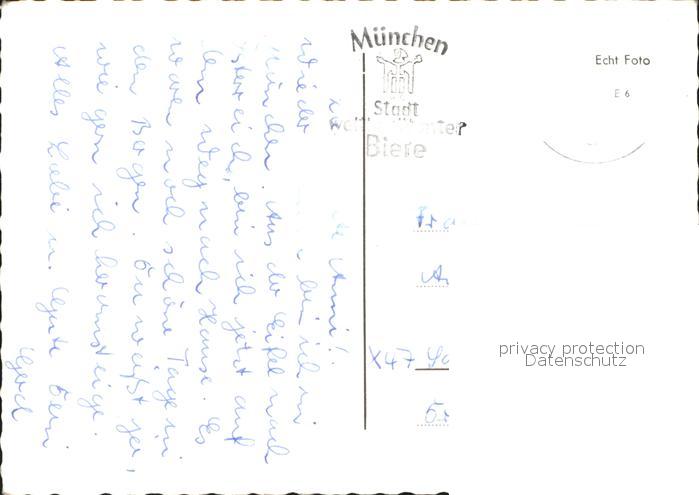 München
Stadt
Biere
Echt Foto
E 6
Anni!
wieder bin ich in
München. Aus der Eifel nach
Österreich, bin ich jetzt auf
dem Weg nach Hause. Es
waren noch schöne Tage in
den Bergen. Du weißt ja,
wie gern ich herumsteige.
Alles Liebe u. Gute Dein
Gerd
X47
privacy protection
Datenschutz